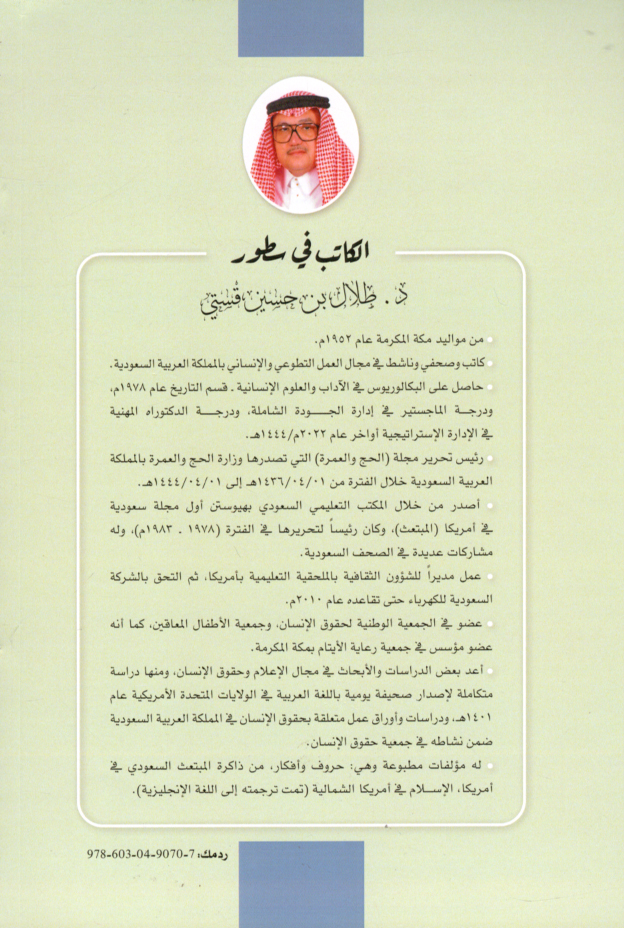 الكاتب في سطور
د. طلال بن حسين قستي
من مواليد مكة المكرمة عام ١٩٥٢م.
كاتب وصحفي وناشط في مجال العمل التطوعي والإنساني بالمملكة العربية السعودية.
حاصل على البكالوريوس في الآداب والعلوم الإنسانية ـ قسم التاريخ عام ١٩٧٨م،
ودرجة الماجستير في إدارة الجــــودة الشاملة، ودرجــة الدكتوراه المهنية
في الإدارة الإستراتيجية أواخر عام ٢٠٢٢م/١٤٤٤هـ.
رئيس تحرير مجلة (الحج والعمرة) التي تصدرها وزارة الحج والعمرة بالمملكة
العربية السعودية خلال الفترة من ١٤٣٦/٠٤/٠١هـ إلى ١٤٤٤/٠٤/٠١هـ.
أصدر من خلال المكتب التعليمي السعودي بهيوستن أول مجلة سعودية
في أمريكا (المبتعث)، وكان رئيساً لتحريرها في الفترة (١٩٧٨ ـ ١٩٨٣م)، وله
مشاركات عديدة في الصحف السعودية.
عمل مديراً للشؤون الثقافية بالملحقية التعليمية بأمريكا، ثم التحق بالشركة
السعودية للكهرباء حتى تقاعده عام ٢٠١٠م.
عضو في الجمعية الوطنية لحقوق الإنسان، وجمعية الأطفال المعاقين، كما أنه
عضو مؤسس في جمعية رعاية الأيتام بمكة المكرمة.
أعد بعض الدراسات والأبحاث في مجال الإعلام وحقوق الإنسان، ومنها دراسة
متكاملة لإصدار صحيفة يومية باللغة العربية في الولايات المتحدة الأمريكية عام
١٤٠١هـ، ودراسات وأوراق عمل متعلقة بحقوق الإنسان في المملكة العربية السعودية
ضمن نشاطه في جمعية حقوق الإنسان.
له مؤلفات مطبوعة وهي: حروف وأفكار، من ذاكرة المبتعث السعودي في
أمريكا، الإســلام في أمريكا الشمالية (تمت ترجمته إلى اللغة الإنجليزية).
ردمك: 7-9070-04-603-978